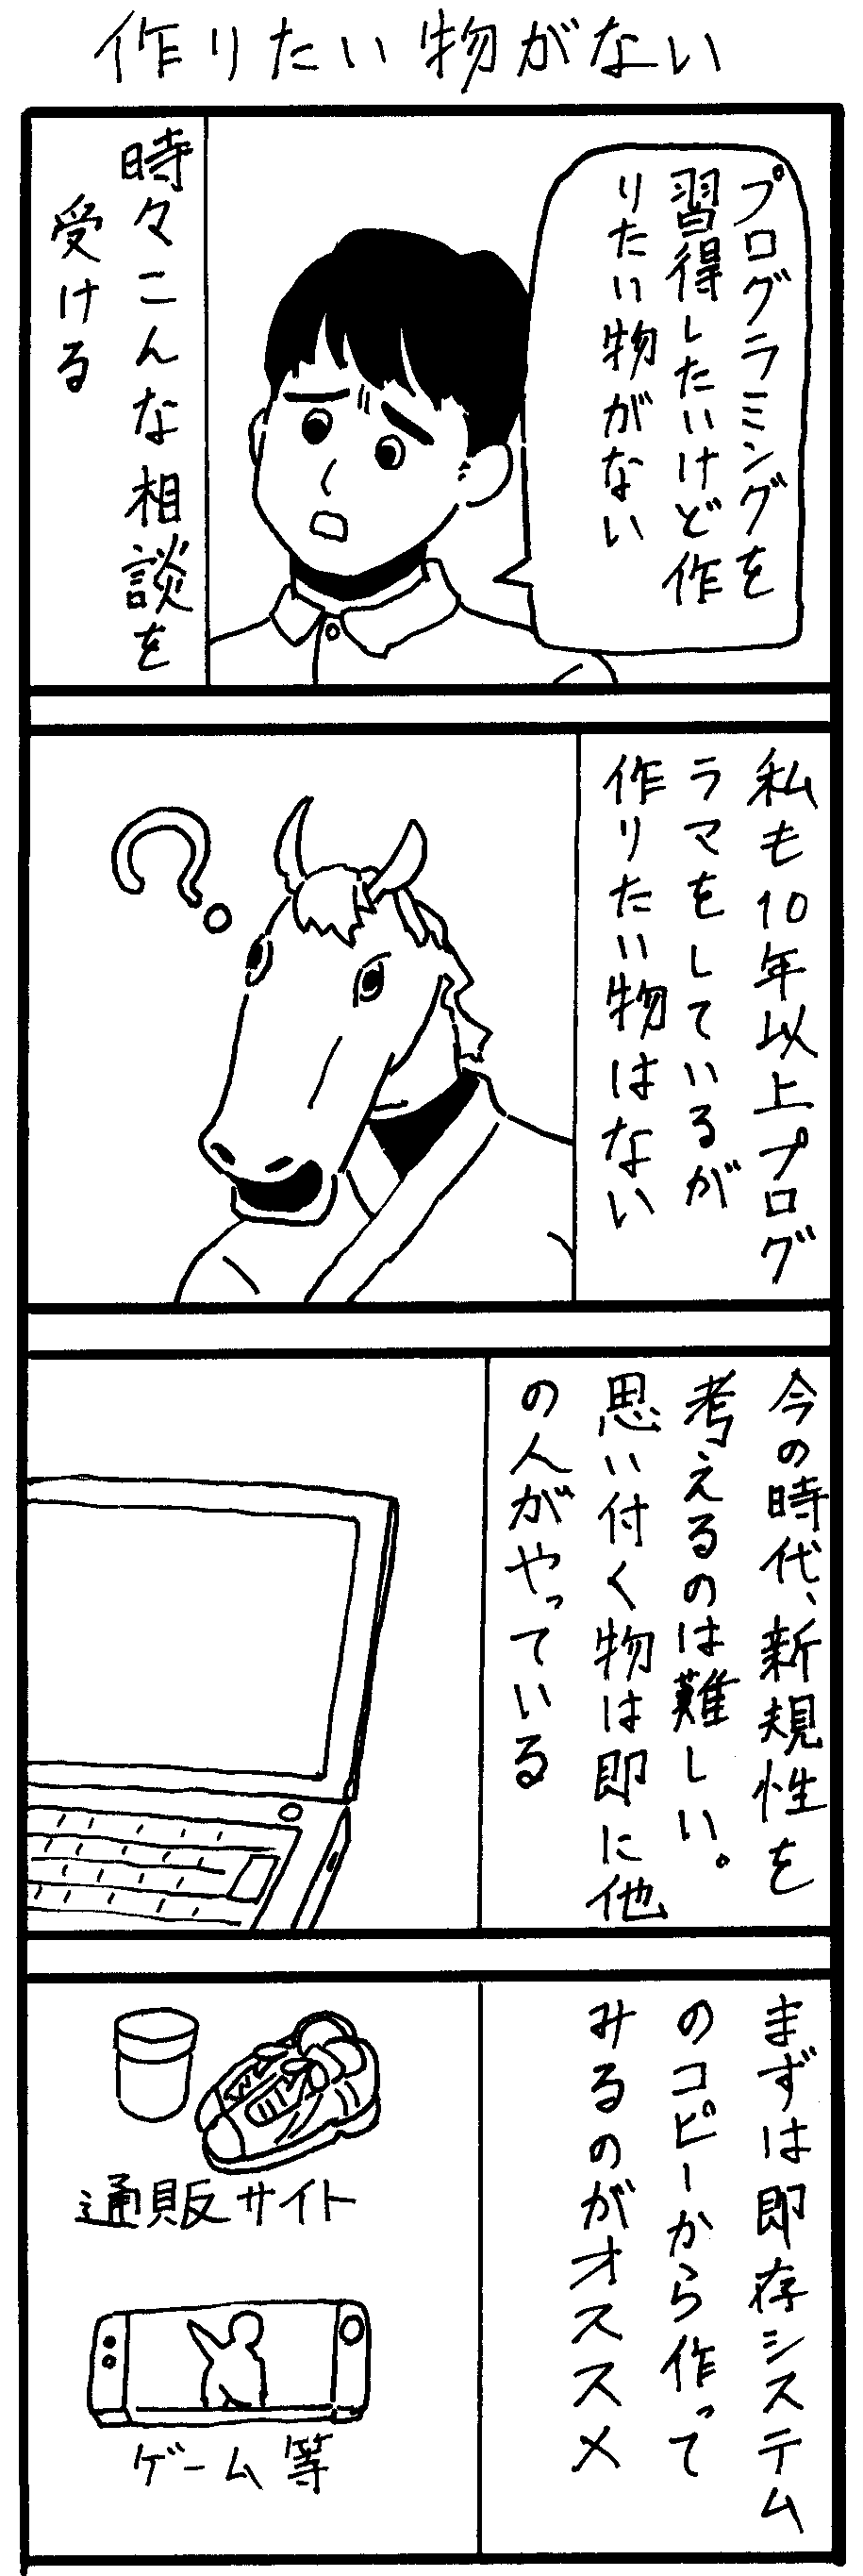 作りたい物がない
プログラミングを
習得したいけど作
りたい物がない
時々こんな相談を
受ける
私も10年以上プログ
ラマをしているが
作りたい物はない
?
今の時代、新規性を
考えるのは難しい。
思い付く物は即に他
の人がやっている
まずは即存システム
のコピーから作って
みるのがオススメ
通販サイト
ゲーム等